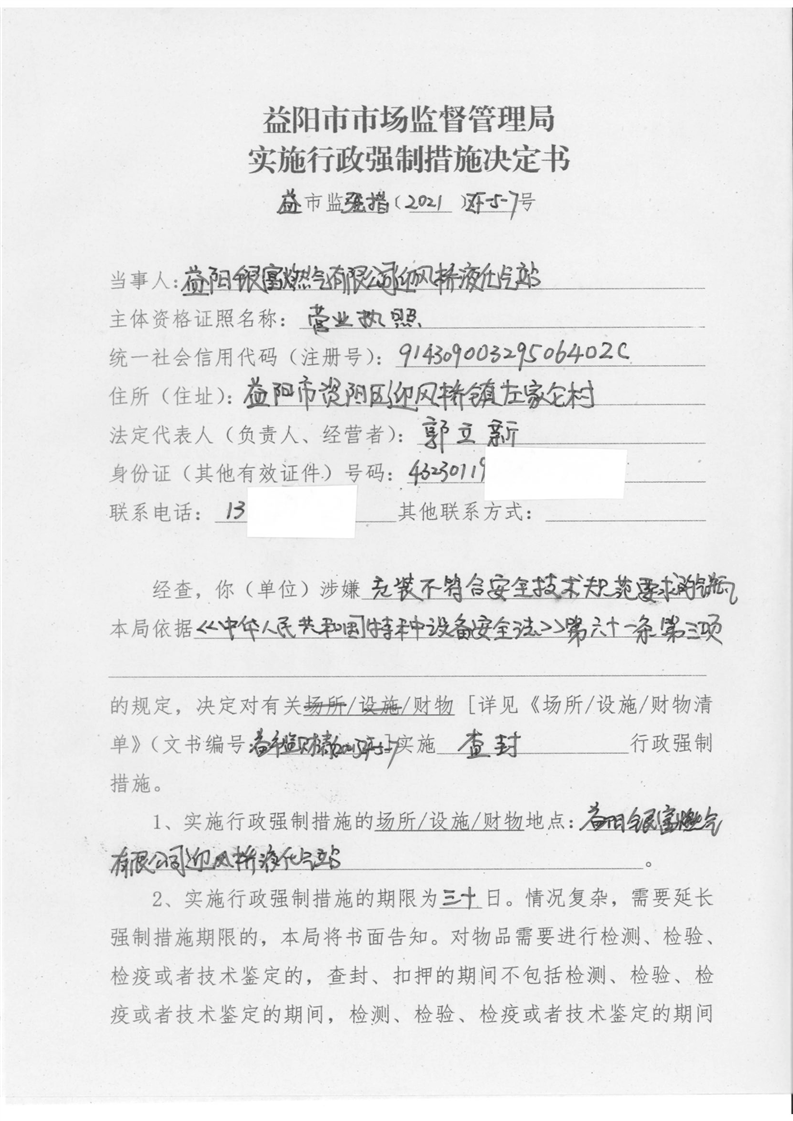 益阳市市场监督管理局
实施行政强制措施决定书
益市监强措(2021)5-7号
当事人:益阳银富燃气有限公司迎风桥液化气站
主体资格证照名称:营业执照
统一社会信用代码(注册号):91430900329506402C
住所(住址):益阳市资阳区迎风桥镇左家仑村
法定代表人(负责人、经营者):郭立新
身份证(其他有效证件)号码:43230119
联系电话:13 其他联系方式:
经查,你(单位)涉嫌充装不符合安全技术规范要求的气瓶
本局依据《中华人民共和国特种设备安全法》第六十一条第三项
的规定,决定对有关场所/设施/财物[详见《场所/设施/财物清
单》(文书编号 实施 查封 行政强制
措施。
1、实施行政强制措施的场所/设施/财物地点:益阳银富燃气
有限公司迎风桥液化气站。
2、实施行政强制措施的期限为三十日。情况复杂,需要延长
强制措施期限的,本局将书面告知。对物品需要进行检测、检验、
检疫或者技术鉴定的,查封、扣押的期间不包括检测、检验、检
疫或者技术鉴定的期间,检测、检验、检疫或者技术鉴定的期间